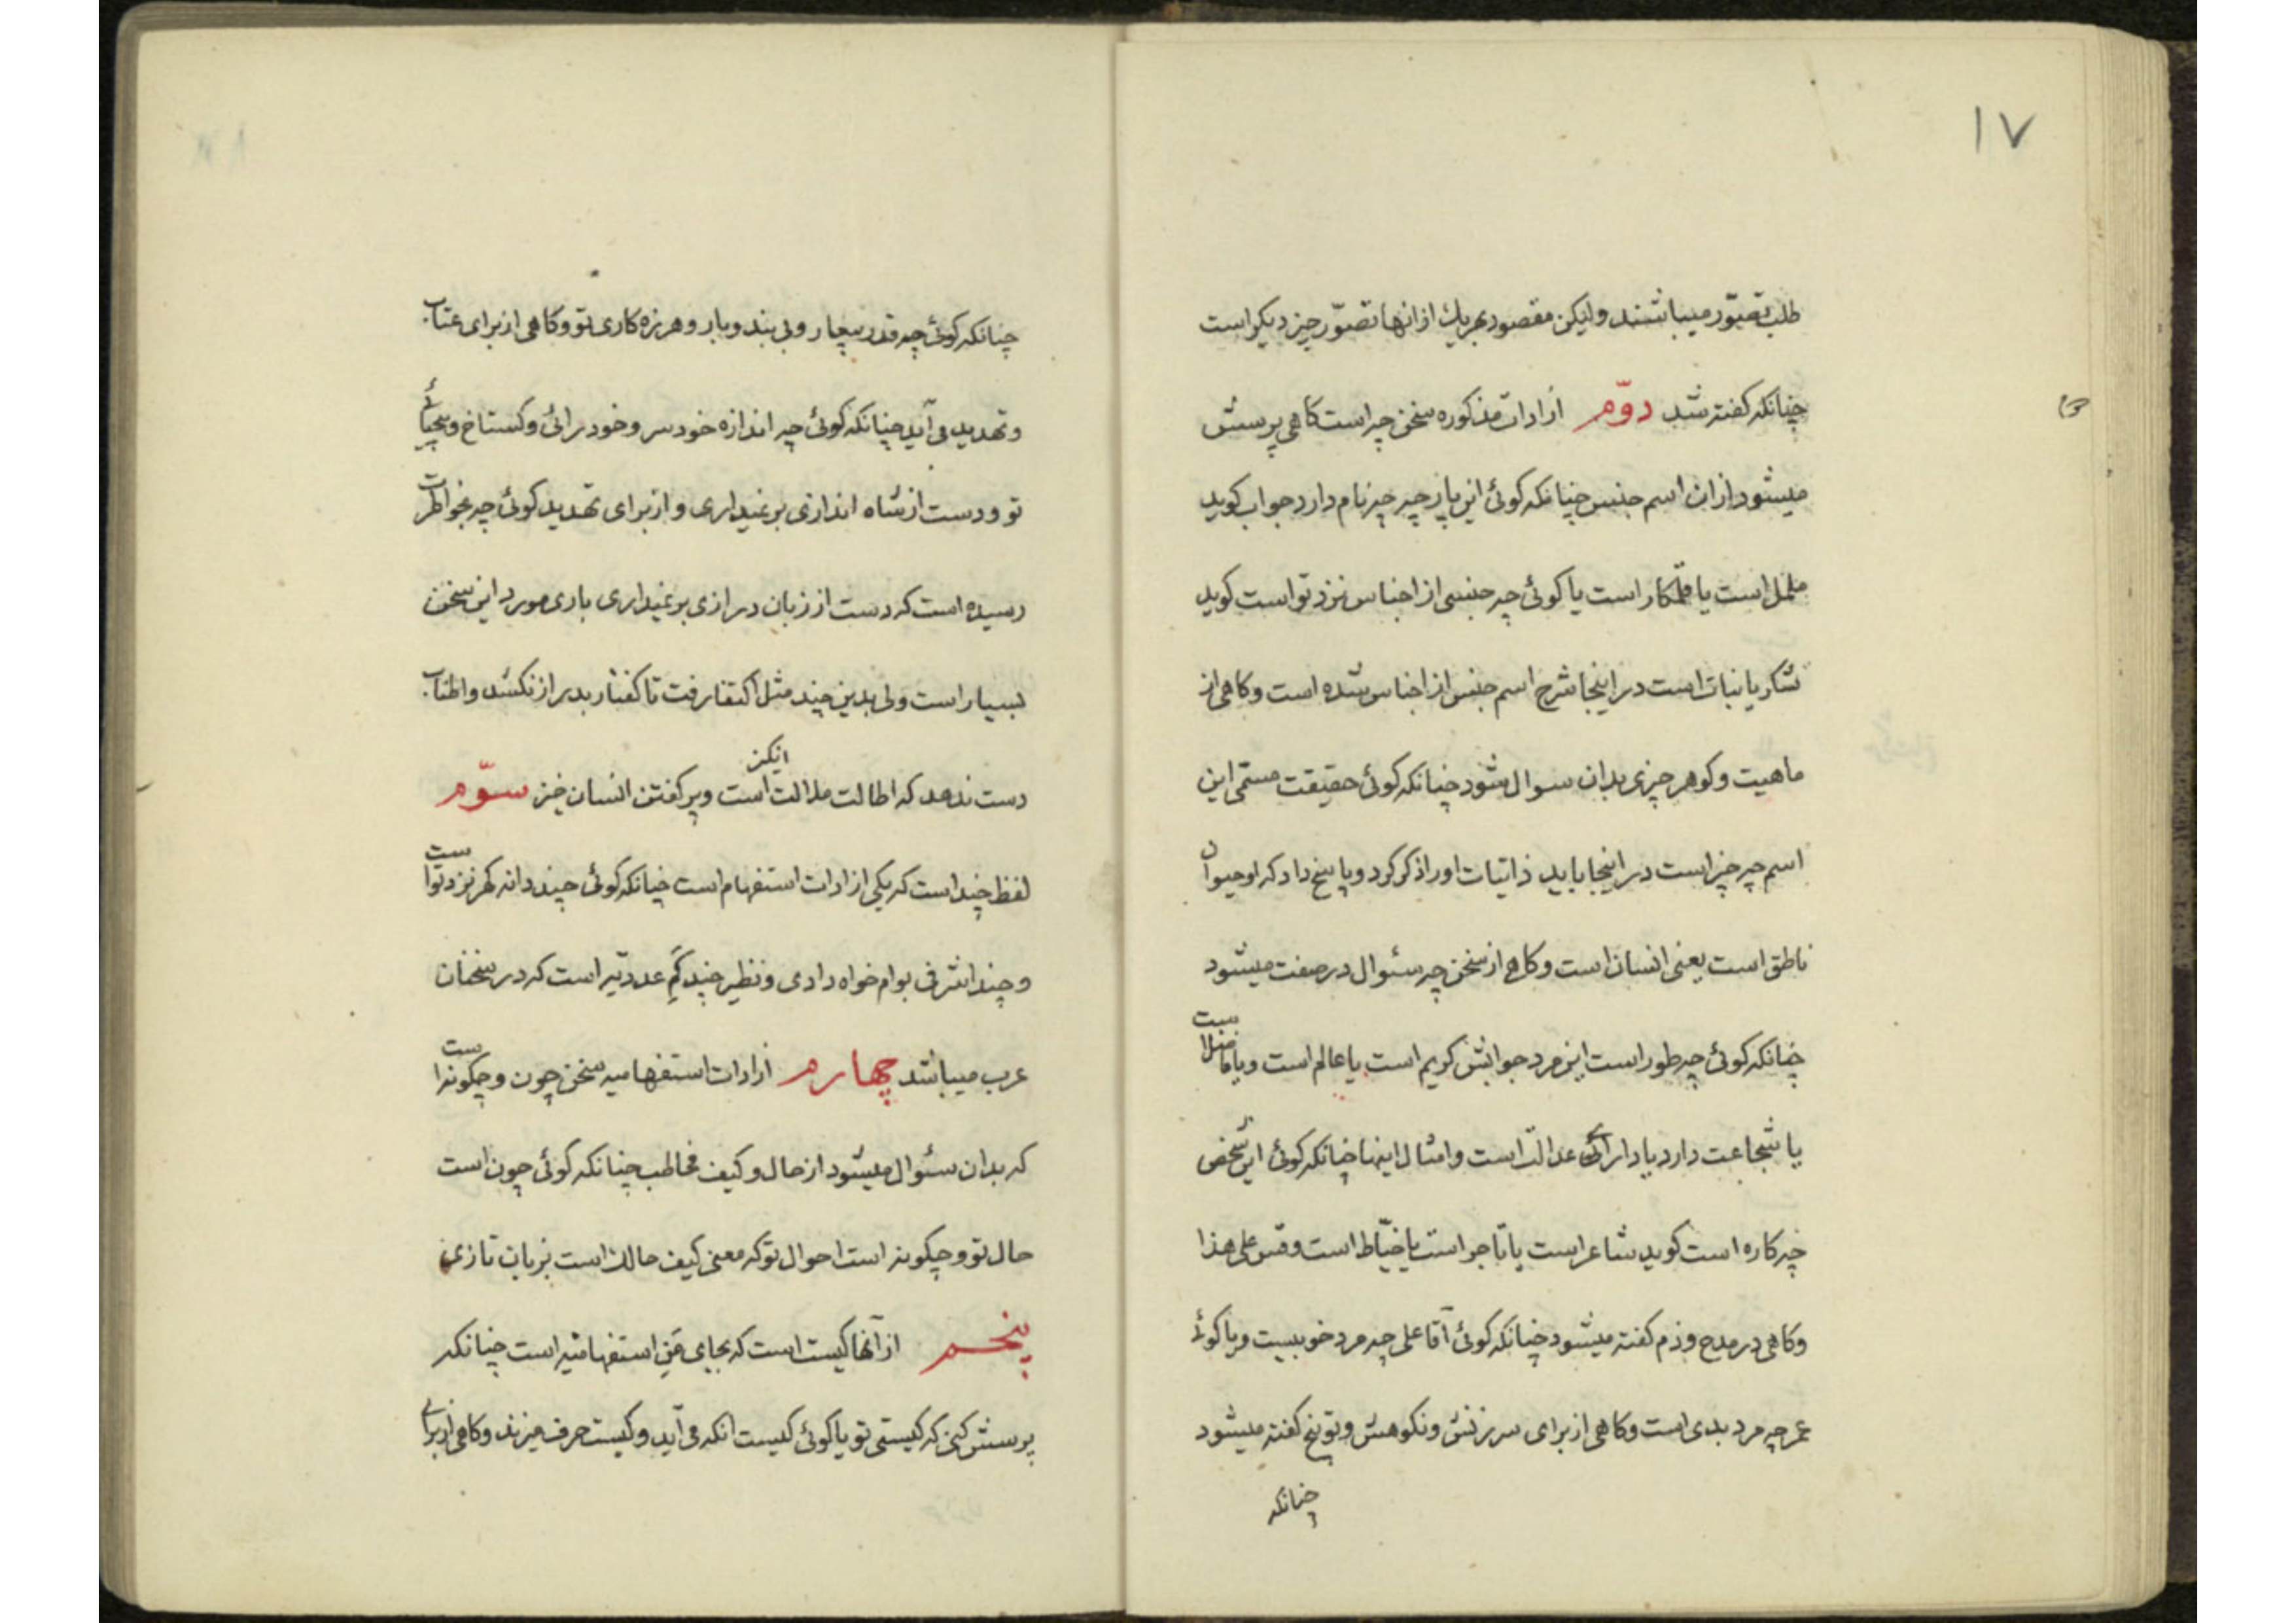 ۱۷
طلب تصوّر میباشند ولیکن مقصود بهر یك از انها تصوّر چیز دیکر است
چنانکه کفته شد دوّم از ادات مذکوره سخن چه است کاهی پرسش
میشود از ان اسم جنس چنانکه کوئی این پارچه چیز نام دارد جواب کوید
ململ است یا قلمکار است یا کوئی چه جنسی از اجناس نزد تو است کوید
شکر یا نبات است در اینجا شرح اسم جنس از اجناس شده است و کاهی از
ماهیت و کوهر چیزی بدان سوال میشود چنانکه کوئی حقیقت مسمّی این
اسم چه چیز است در اینجا باید ذاتیات او را ذکر کرد و پاسخ داد که او حیوان
ناطق است یعنی انسان است و کاهی از سخن چه سئوال در صفت میشود
چنانکه کوئی چه طور است این مرد جوابش کریم است یا عالم است و یا فاضل است
یا شجاعت دارد یا دارائی عدالت است و امثال اینها چنانکه کوئی این شخص
چه کاره است کوید شاعر است یا تاجر است یا خیّاط است و قس علی هذا
وکاهی در مدح و ذم کفته میشود چنانکه کوئی آقا علی چه مرد خوبیست و یا کوئی
عمر چه مرد بدی است و کاهی از برای سرزنش و نکوهش و توبیخ کفته میشود
چنانکه
چنانکه کوئی چه قدر بیعار و بی بند و بار و هرزه کاری تو و کاهی از برای عتاب
و تهدید می آید چنانکه کوئی چه اندازه خود سر و خود رائی و کستاخ و بیحیائی
تو و دست از شاه اندازی بر نمیداری و از برای تهدید کوئی چه بخواطرت
رسیده است که دست از زبان درازی بر نمیداری باری مورد این سخن
بسیار است ولی بدین چند مثل اکتفا رفت تا کفتار بدرازا نکشد و اطناب
دست ندهد که اطالت ملالت انکیز است و پر کفتن انسان خیز سوّم
لفظ چند است که یکی از ادات استفهام است چنانکه کوئی چند دانه کهر نزد تو است
و چند اشرفی بوام خواه دادی و نظیر چند کَمِ عددیّه است که در سخنان
عرب میباشد چهارم از ادات استفهامیه سخن چون و چکونه است
که بدان سئوال میشود از حال و کیف مخاطب چنانکه کوئی چون است
حال تو و چکونه است احوال تو که معنی کیف حالك است بزبان تازی
پنجم از آنها کیست است که بجای مَنِ استفهامیّه است چنانکه
پرسش کنی که کیستی تو یا کوئی کیست انکه می آید و کیست حرف میزند و کاهی از برای